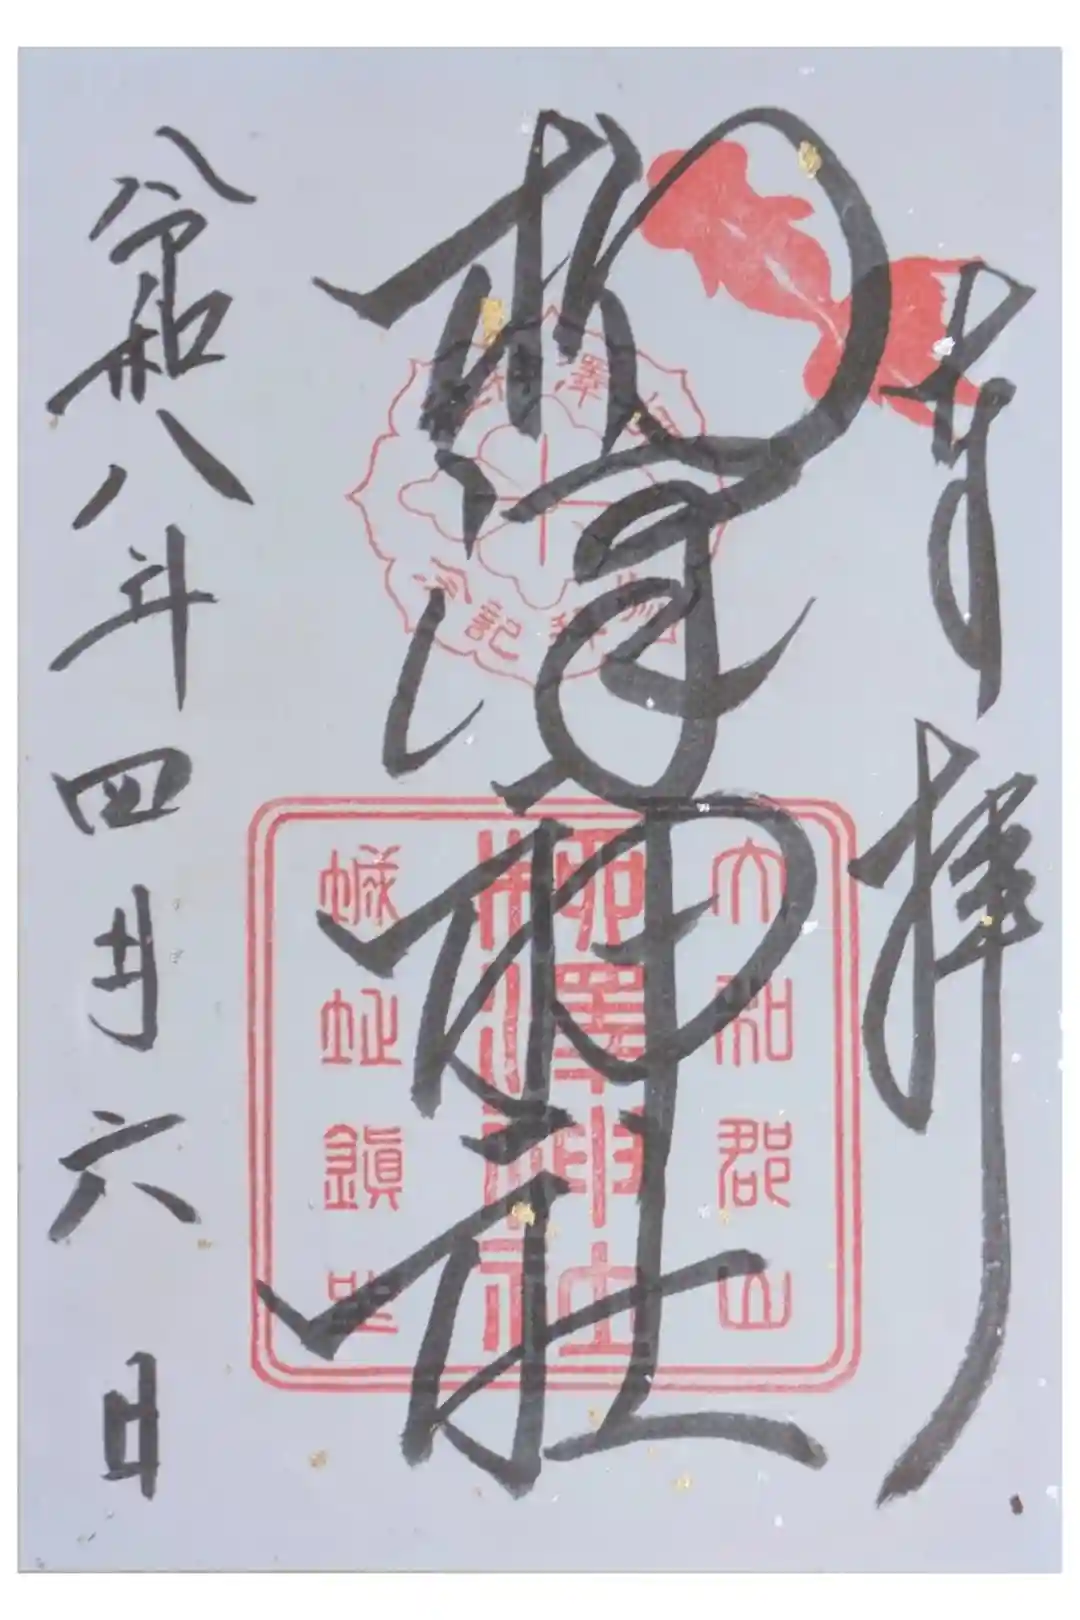 奉拝
柳澤神社
大和郡山
柳澤神社
城址鎮座
参拝記念
令和八年四月六日